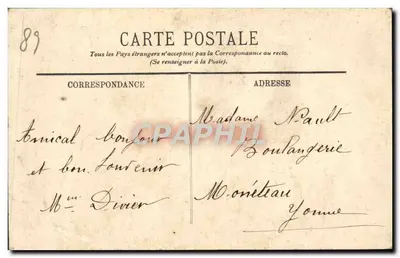 89
CARTE POSTALE
Tous les Pays étrangers n'acceptent pas la Correspondance au recto.
(Se renseigner à la Poste).
CORRESPONDANCE
ADRESSE
Amical bonjour
et bon Souvenir
Mme Divier
Madame Nault
Boulangerie
Monéteau
Yonne
CPAPHIL